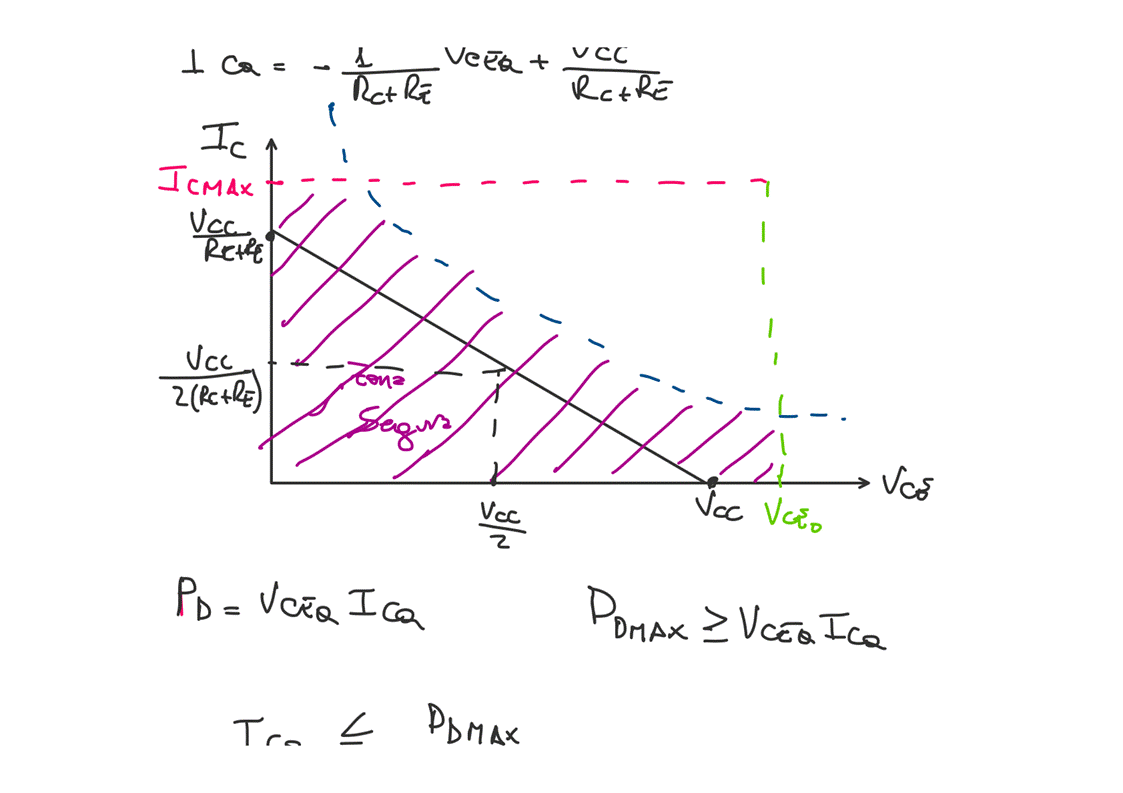 I CQ = - 1/(RC+RE) VCEQ + VCC/(RC+RE)
IC
ICMAX
VCC/(RC+RE)
VCC/2(RC+RE)
zona
Segura
VCE
VCC/2
VCC
VCEO
PD = VCEQ ICQ
PDMAX ≥ VCEQ ICQ
ICQ ≤ PDMAX